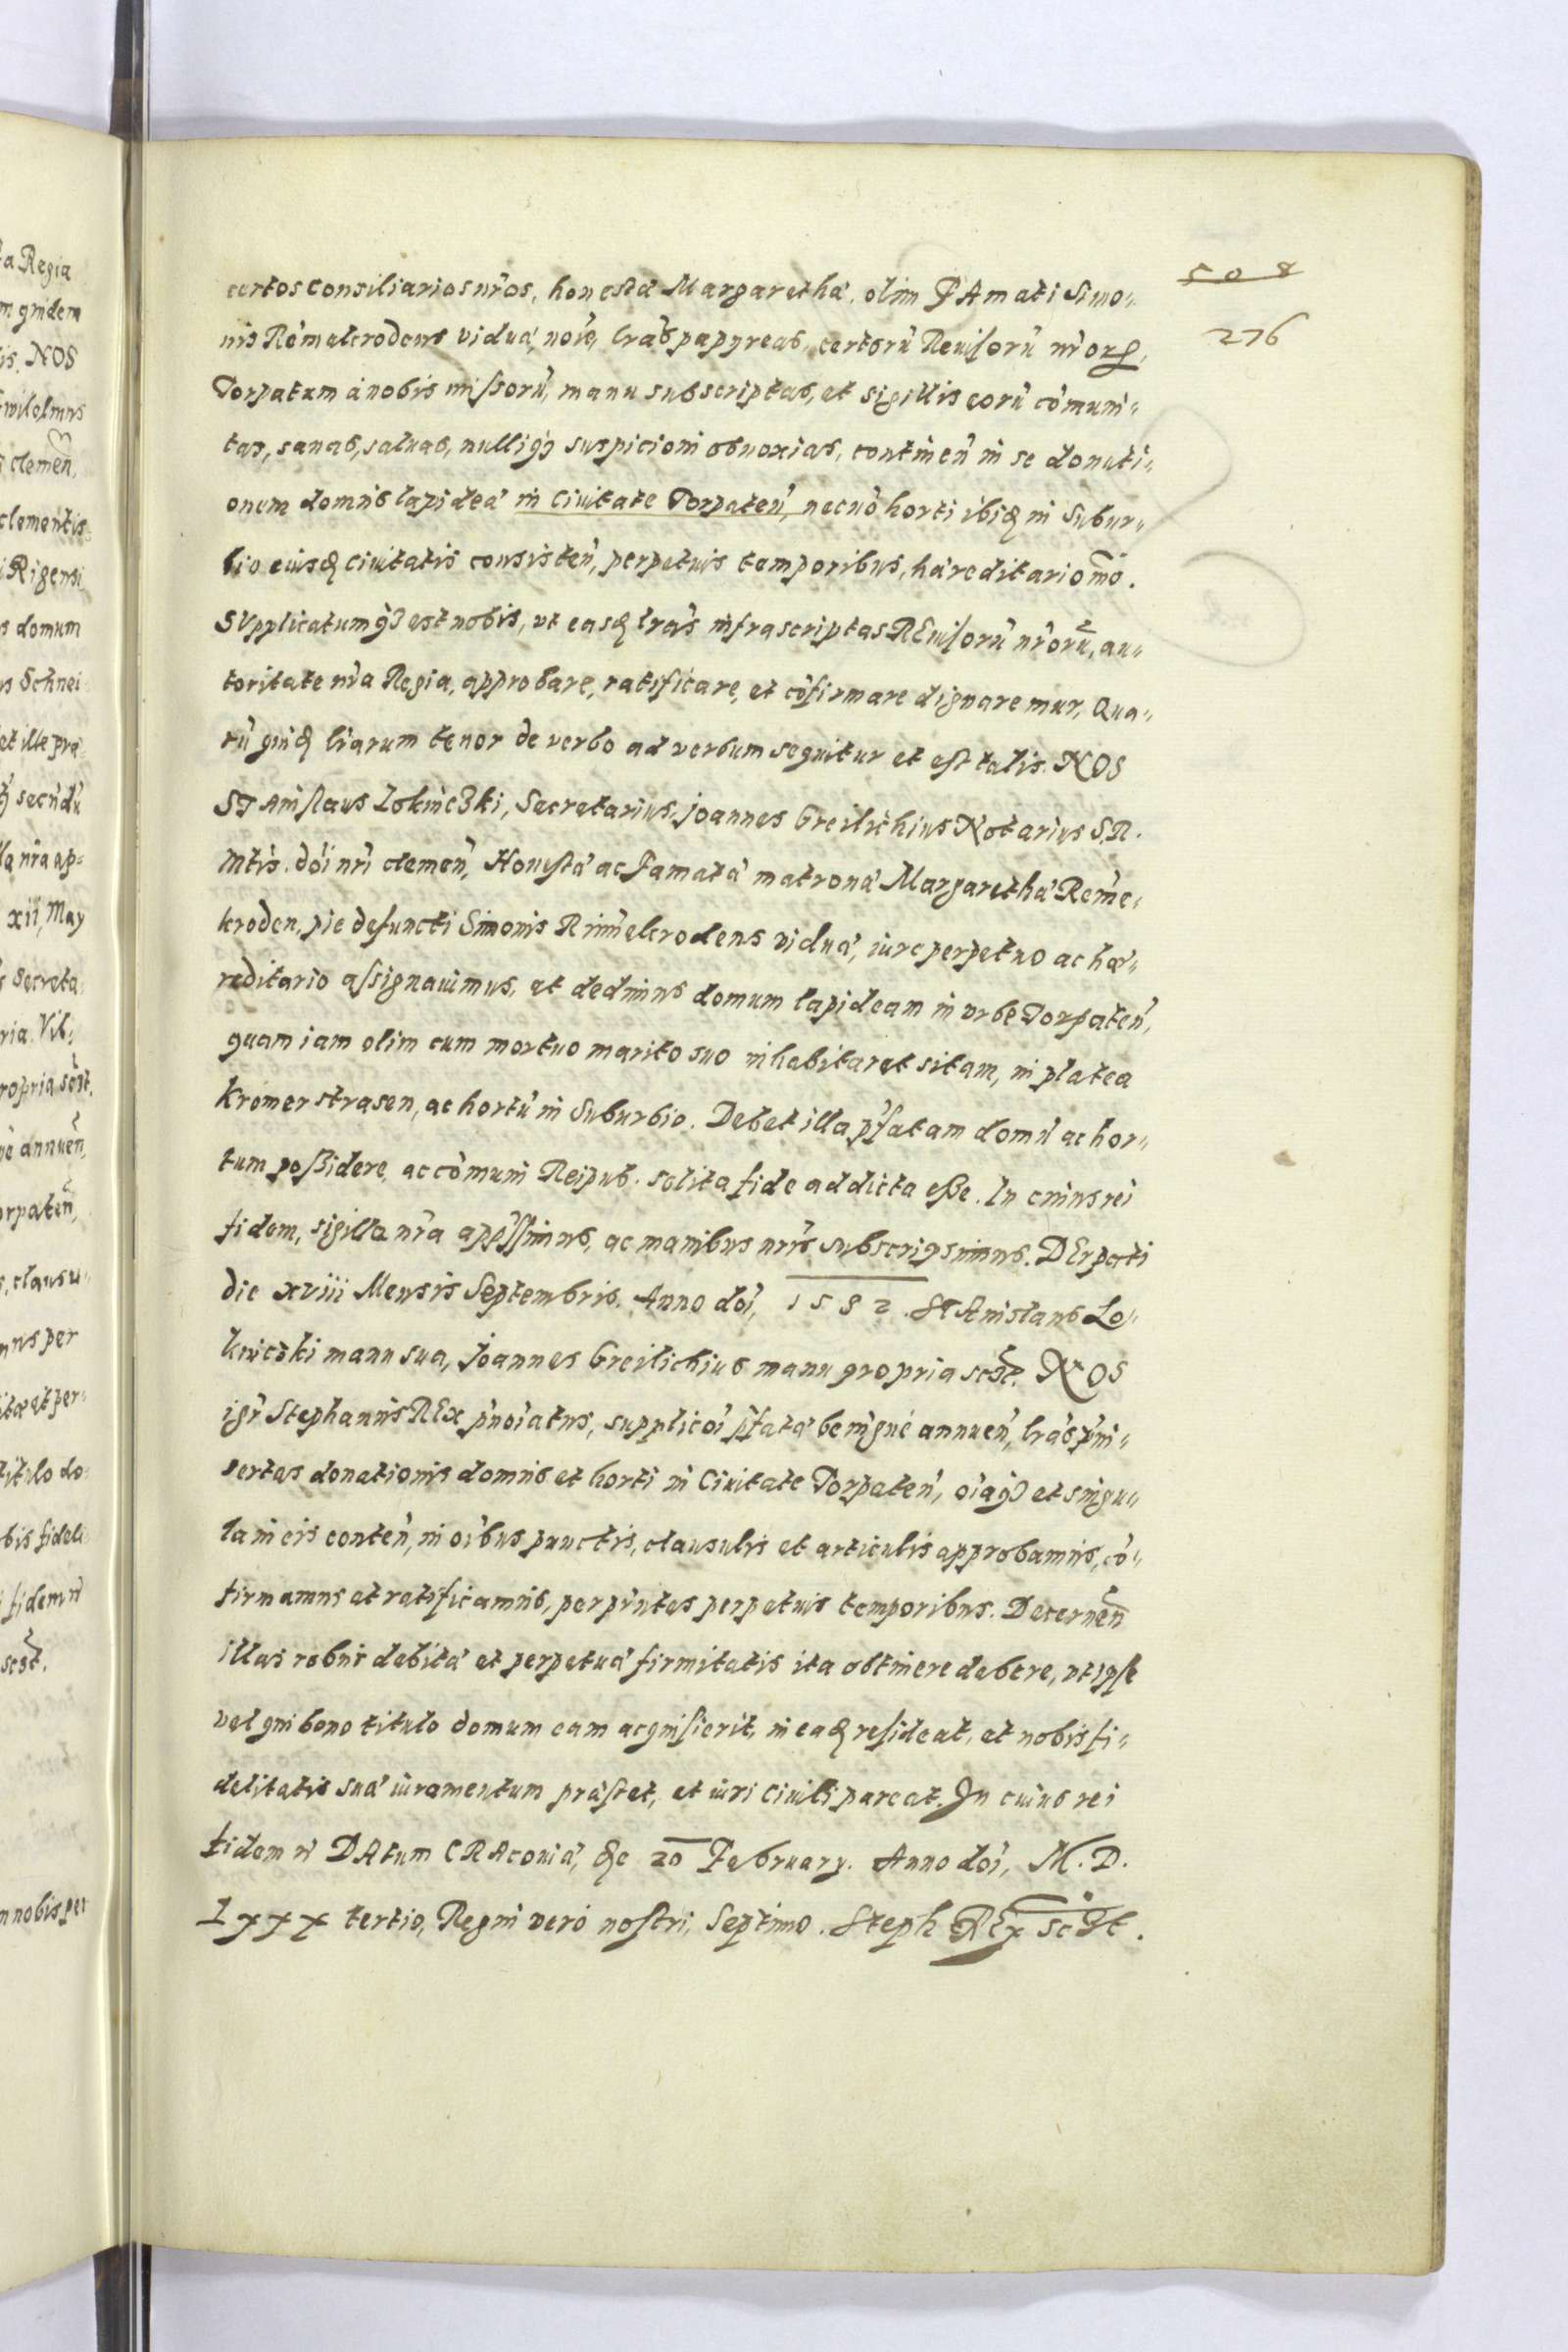 508
276
certos Consiliarios nr̃os, honestá Margarethá, olim FAmati Simo„
nis Rém̃elcrodens viduá, noĩe, lr̃as papyreas, certorũ Reuisorũ nr̃orũ,
Torpatum á nobis missorũ, manu subscriptas, et sigillis eorũ cõmuni„
tas, sanas, saluas, nulliq́ʒ suspicioni obnoxias, continen̄ in se donati„
onem domus lapideá in Ciuitate Torpaten̄, necnõ horti ibiđ in Subur„
bio eiusđ ciuitatis consisten̄, perpetuis temporibus, háreditario mõ.
SVpplicatumq́ʒ est nobis, vt easđ lr̃as infrascriptas REuisorũ nr̃orũ, au„
toritate nr̃a Regia, approbare, ratificare, et cõfirmare dignaremur, Qua„
rũ quiđ lr̃arum tenor de verbo ad verbum sequitur et est talis. NOS
STAnislaus Lokniczki, Secretarius, Joannes Greilichius Notarius S. R.
Mtis. dñi nr̃i clemen̄, Honestá ac Famatá matroná Margarethá Rem̃e„
kroden, pie defuncti Simonis Rim̃elcrodens viduá, iure perpetuo ac hæ„
reditario assignauimus, et dedimus domum lapideam in vrbe Torpaten̄,
quam iam olim cum mortuo marito suo inhabitaret sitam, in platea
Kromerstrasen, ac hortũ in Suburbio. Debet illa p̃fatam domũ ac hor„
tum possidere, ac cõmuni Reipub. solita fide addicta esse. In cuius rei
fidem, sigilla nr̃a app̃ssimus, ac manibus nr̃is subscripsimus. DErpati
die xviii Mensis Septembris. Anno dñi, 1582. STAnislaus Lo„
kniczki manu sua, Joannes Greilichius manu propria scpt. NOS
igr̃ Stephanus REx p̃noĩatus, supplicõi p̃fatá benigné annuen̄, lr̃as p̃in„
sertas donationis domus et horti in Ciuitate Torpaten̄, oĩaq́ʒ et singu„
la in eis conten̄, in oĩbus punctis, clausulis et articulis approbamus, cõ„
firmamus et ratificamus, per p̃ntes perpetuis temporibus. Decernen̄
illas robur debitá et perpetuá firmitatis ita obtinere debere, vt ipse
vel qui bono titulo domum eam acquisierit, in eađ resideat, et nobis fi„
delitatis suá iuramentum prástet, et iuri Ciuili pareat. In cuius rei
fidem ñ DAtum CRAcouiá, đe 20 February. Anno dñi, M. D.
Lxxx tertio, Regni veró nostri, Septimo. Steph REx scpt.